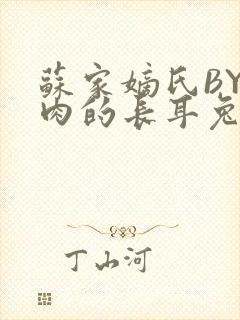 蘇家嫡氏BY
肉的长耳兔
丁山河